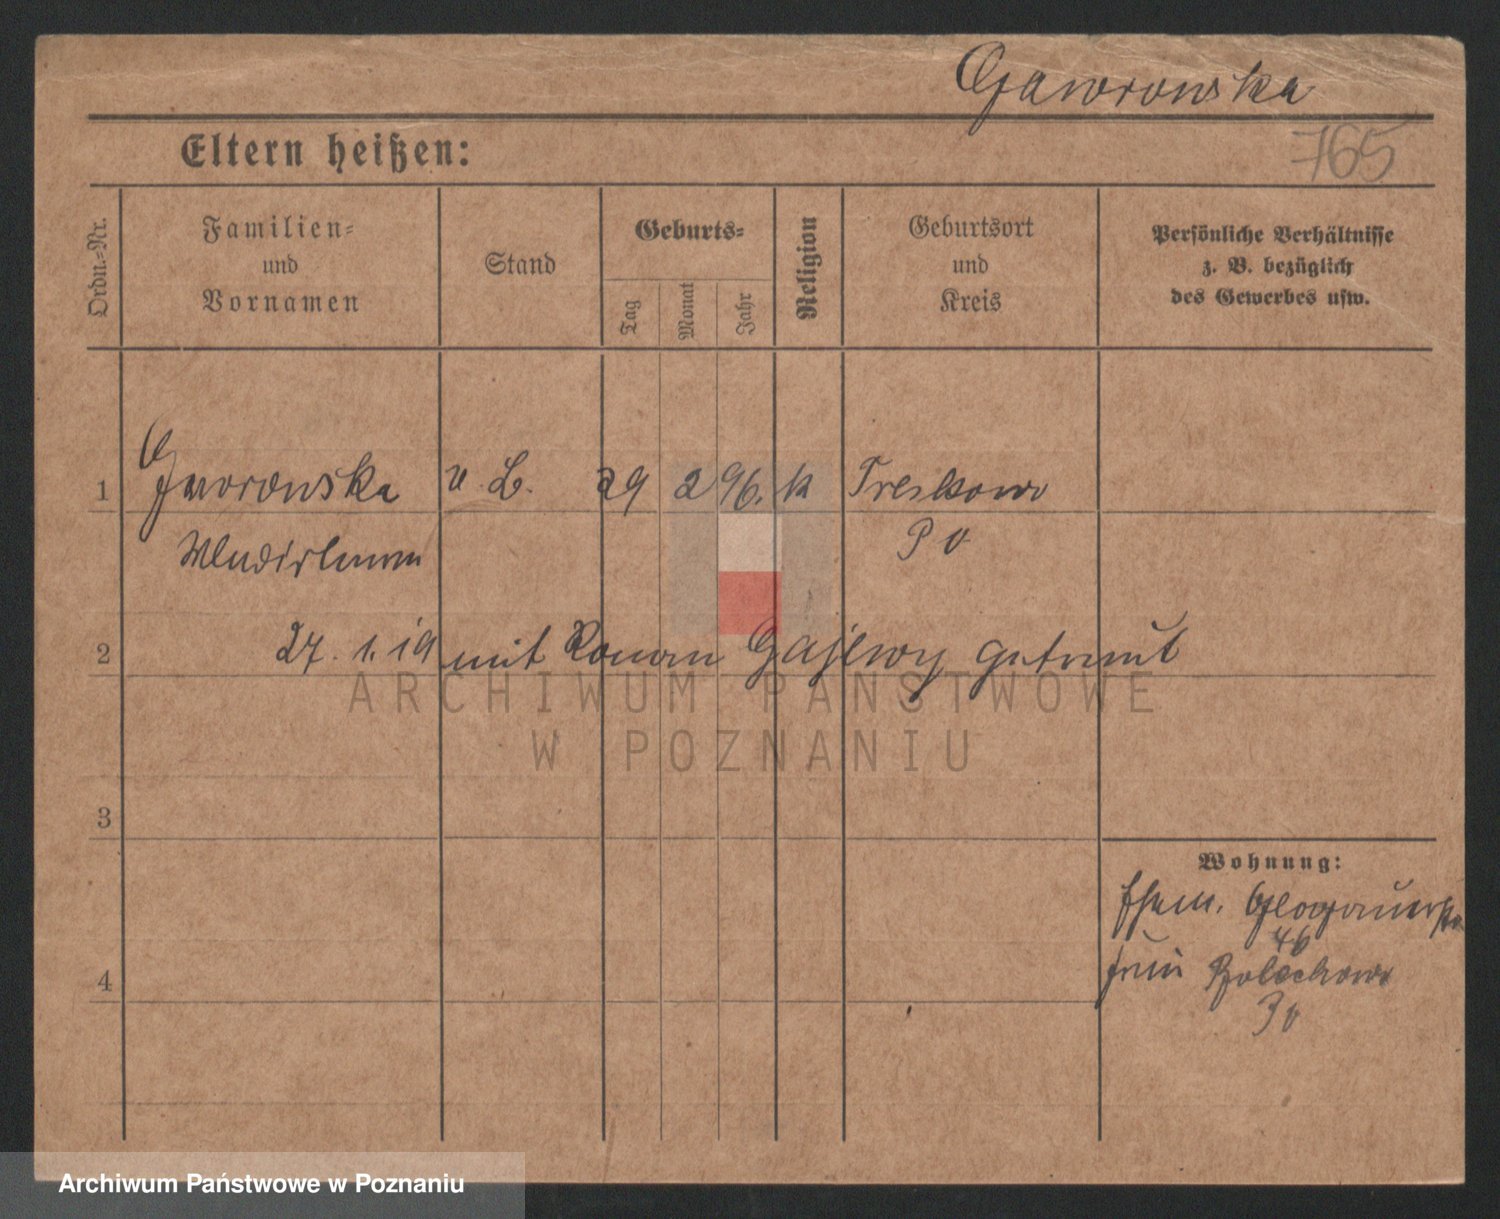 Gaworowska
765
Eltern heißen:
Ordn.-Nr.
Familien-
und
Vornamen
Stand
Geburts-
Tag
Monat
Jahr
Religion
Geburtsort
und
Kreis
Persönliche Verhältnisse
z. B. bezüglich
des Gewerbes usw.
1 Gaworowska v. L. 29 2 96. k Treskowo
P O
2 27. 1. 19 mit Roman Gajewy getraut
ARCHIWUM PAŃSTWOWE
W POZNANIU
3
Wohnung:
Ehem. Glogauerstr.
46
4
Bolechowo
P O
Archiwum Państwowe w Poznaniu